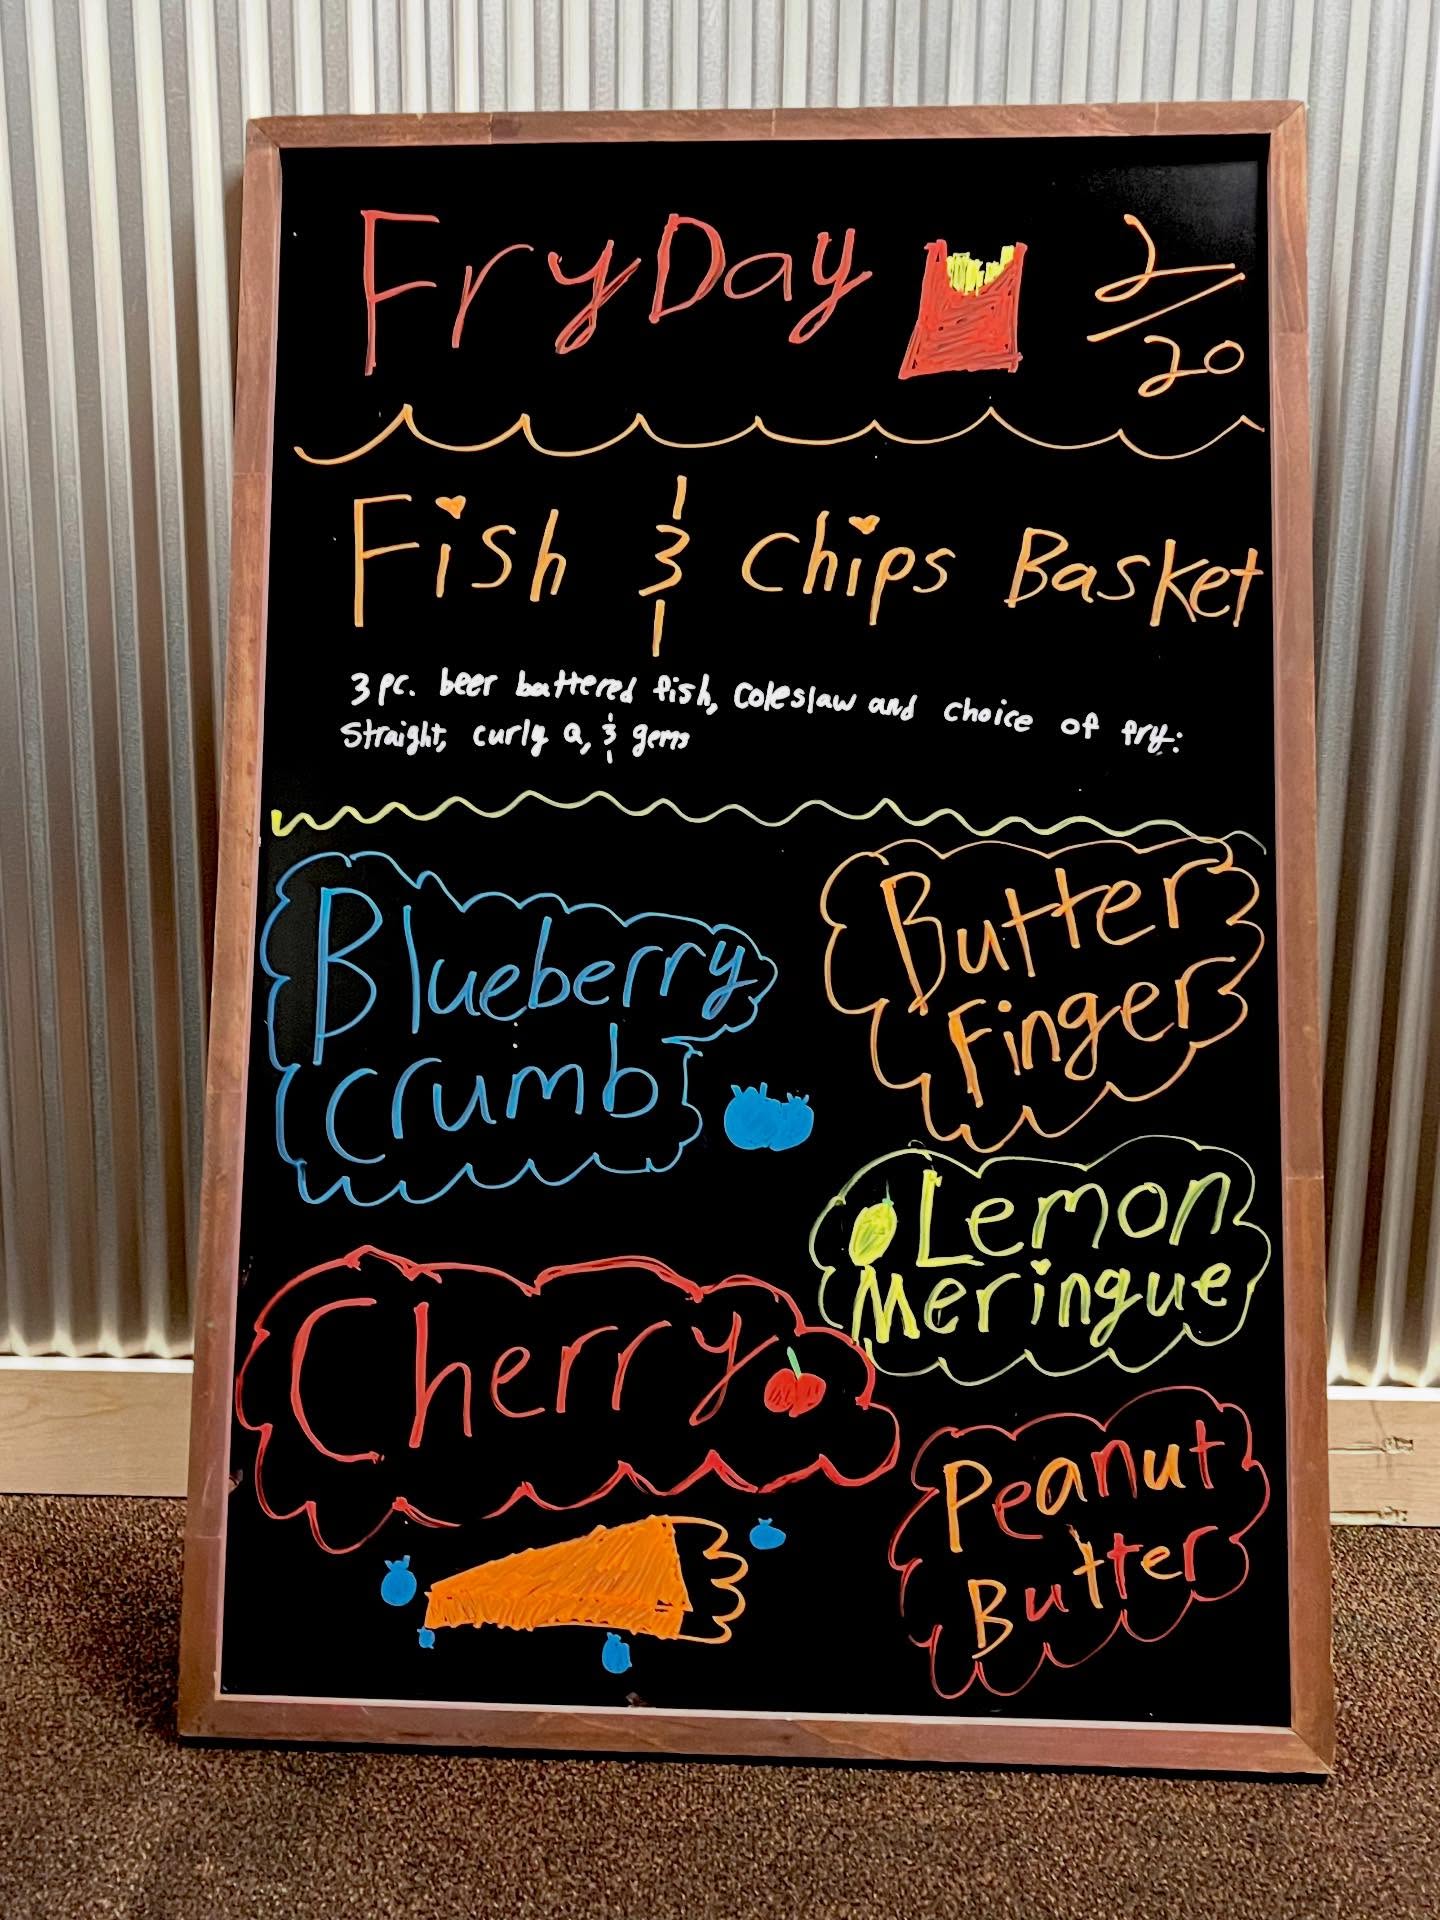 FryDay 2/20
Fish & Chips Basket
3 pc. beer battered fish, coleslaw and choice of fry:
Straight, curly Q, & gems
Blueberry
crumb
Butter
Finger
Lemon
Meringue
Cherry
Peanut
Butter